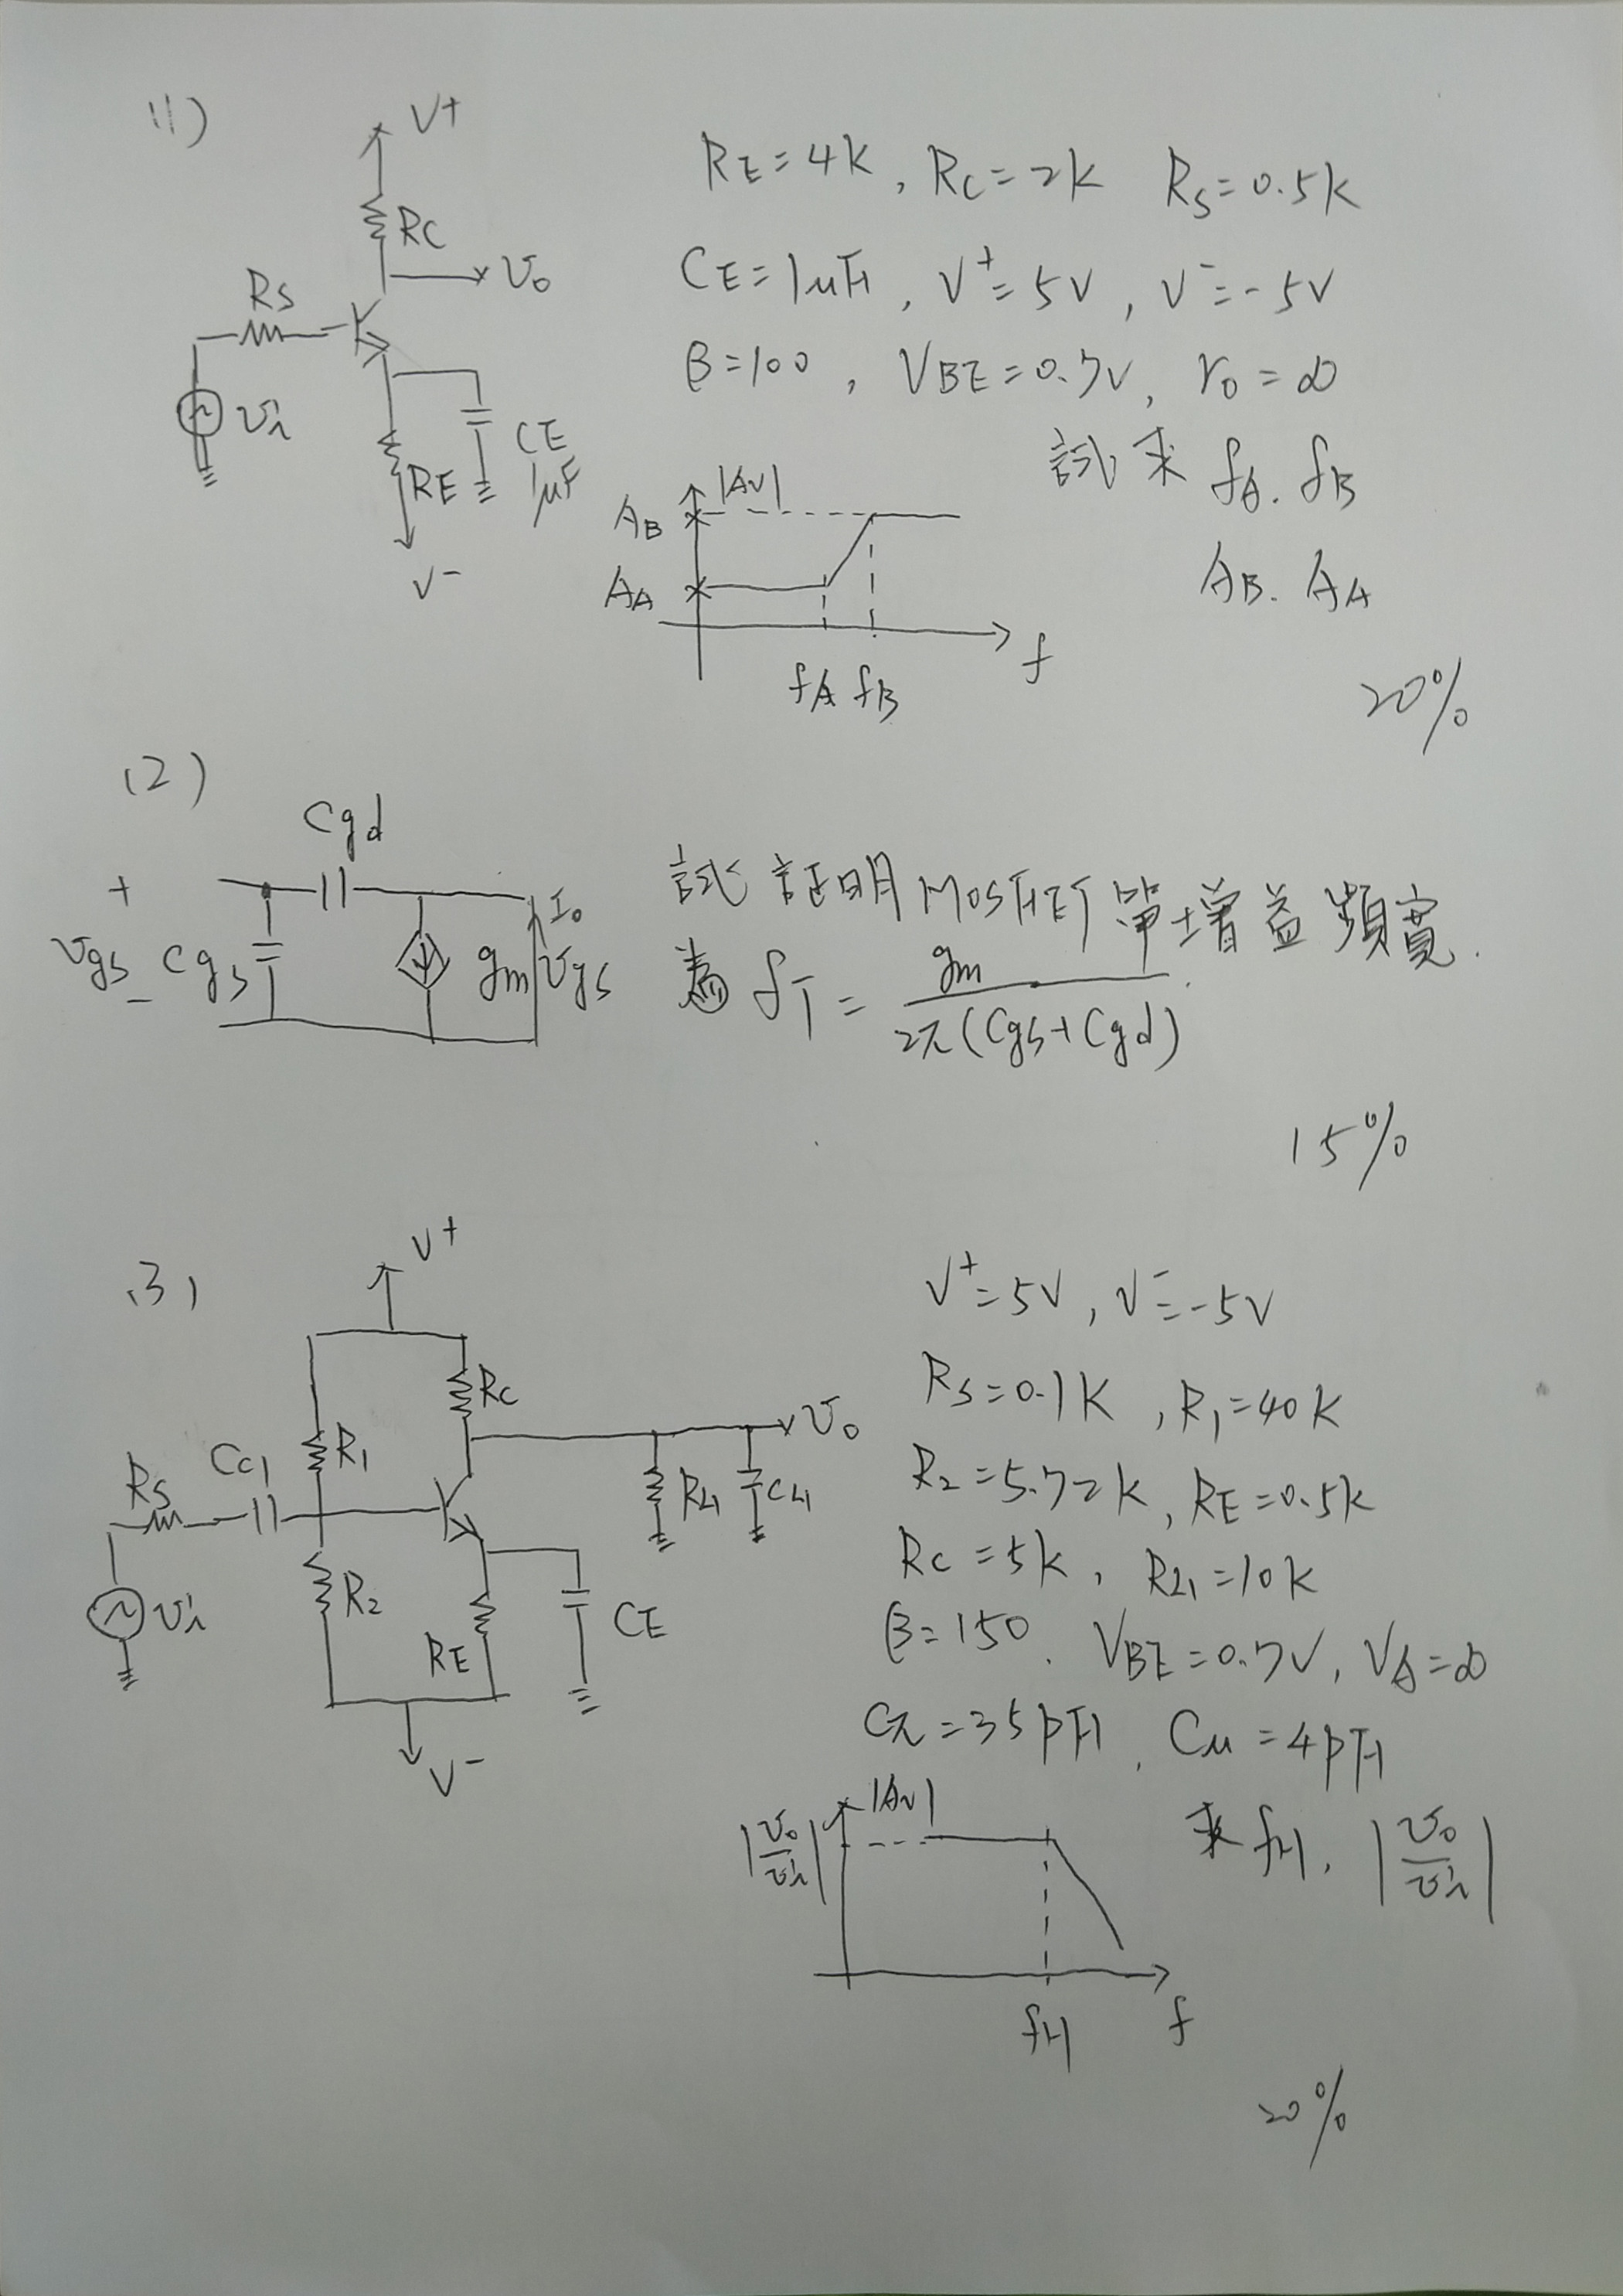 (1)
V+
RC
Rs
υo
υi
RE
CE
1μF
V-
RE=4K, RC=2K RS=0.5K
CE=1μF, V+=5V, V-=-5V
β=100, VBE=0.7V, ro=∞
試求 fA. fB
AB. AA
|Av|
AB
AA
fA fB
f
20%
(2)
Cgd
+
υgs
-
Cgs
gmυgs
Io
試証明MOSFET單增益頻寬.
為 fT = gm / 2π(Cgs+Cgd)
15%
(3)
V+
RC
R1
υo
Rs
CC1
RL
CL
υi
R2
RE
CE
V-
V+=5V, V-=-5V
RS=0.1K, R1=40K
R2=5.72K, RE=0.5K
RC=5K, RL=10K
β=150. VBE=0.7V, VA=∞
Cπ=35pF, Cμ=4pF
求 fH, |υo/υi|
|Av|
|υo/υi|
fH
f
20%